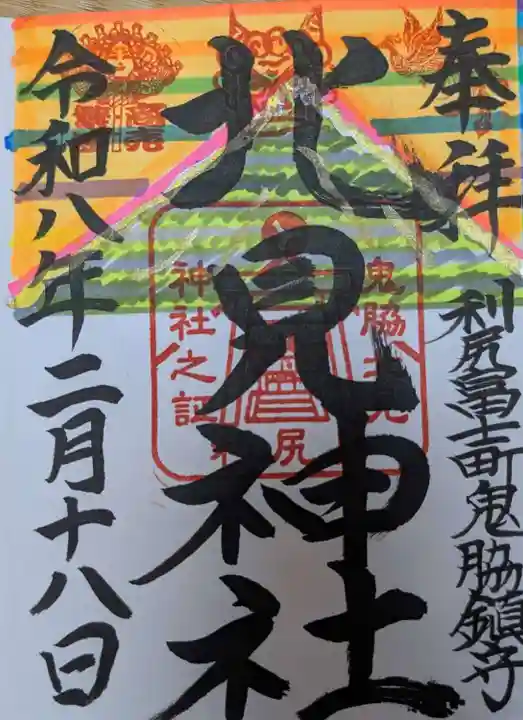 奉拝
利尻富士町鬼脇鎮守
北見神社
令和八年二月十八日
鬼脇北見
神社之証
利尻
商売
繁盛